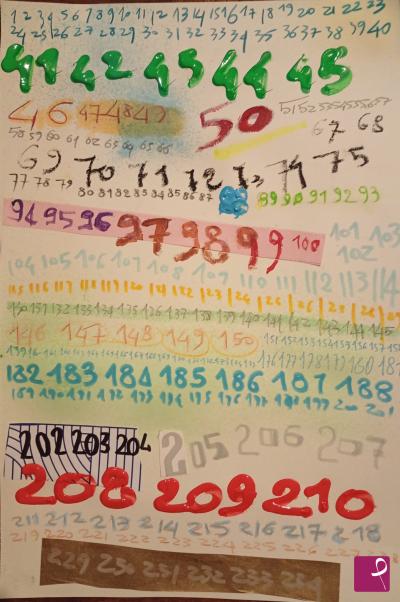 1 2 3 4 5 6 7 8 9 10 11 12 13 14 15 16 17 18 19 20 21 22 23
24 25 26 27 28 29 30 31 32 33 34 35 36 37 38 39 40
41 42 43 44 45
46 47 48 49 50 51 52 53 54 55 56 57
58 59 60 61 62 63 64 65 66 67 68
69 70 71 72 73 74 75
77 78 79 80 81 82 83 84 85 86 87 89 90 91 92 93
94 95 96 97 98 99 100 101 103
102
104 105 106 107 108 109 110 111 112 113 114
115 116 117 118 119 120 121 122 123 124
146 147 148 149 150 151 152 153 154 155 156 157
176 177 178 179 180 181
182 183 184 185 186 187 188
202 203 204 205 206 207
208 209 210
211 212 213 214 215 216 217 218
219 220 221 222 223 224 225 226
229 230 231 232 233 234